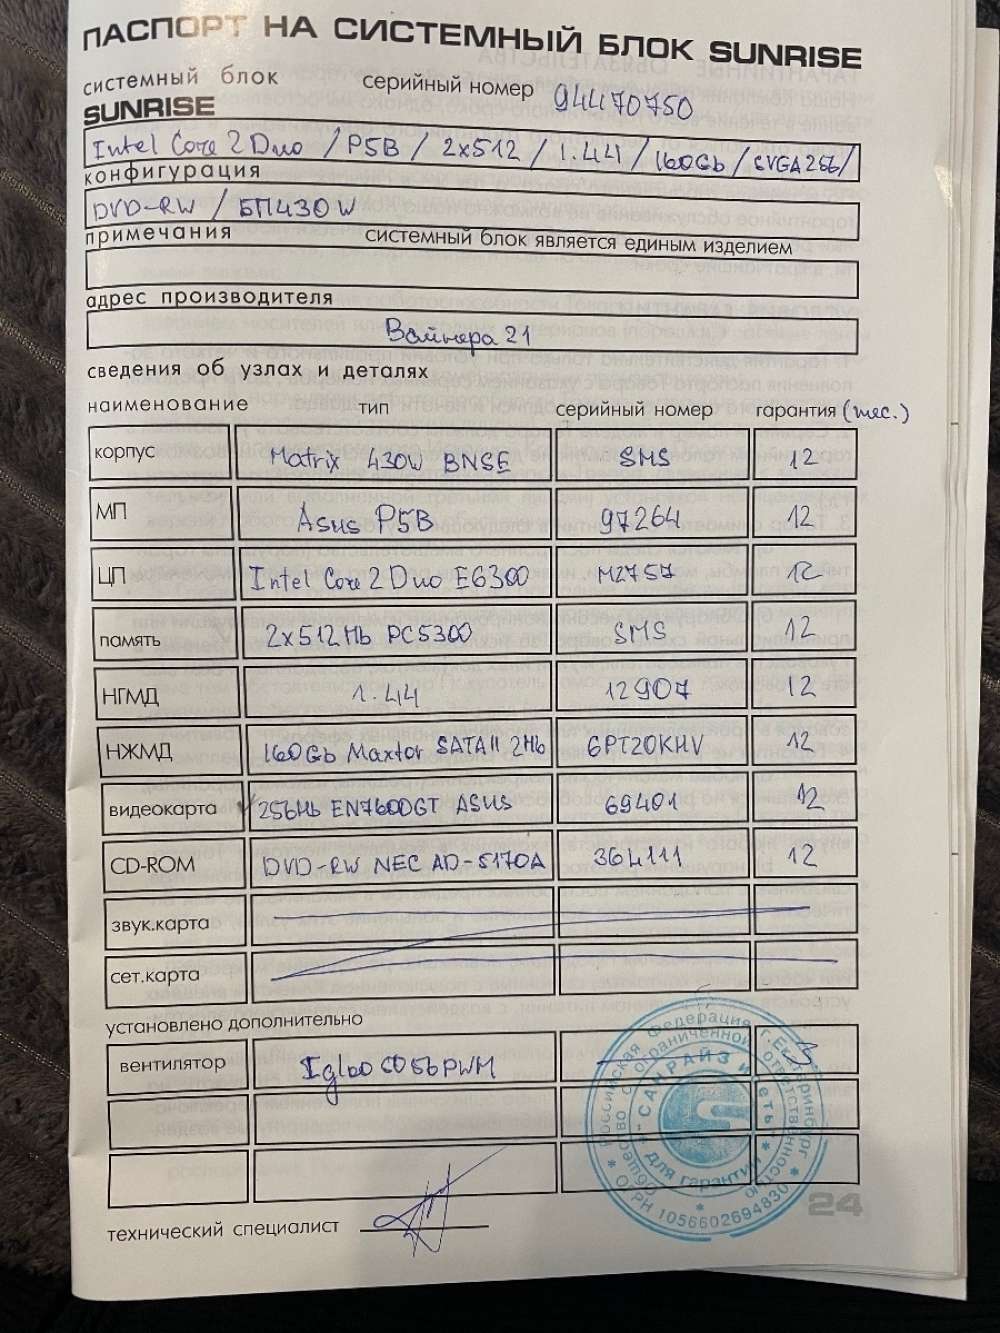 ПАСПОРТ НА СИСТЕМНЫЙ БЛОК SUNRISE
системный блок серийный номер 94470750
SUNRISE
Intel Core 2 Duo / P5B / 2x512 / 1.44 / 160Gb / SVGA256/
конфигурация
DVD-RW / БП430W
примечания системный блок является единым изделием
адрес производителя
Вайнера 21
сведения об узлах и деталях
наименование тип серийный номер гарантия (мес.)
корпус Matrix 430W BNSE SMS 12
МП Asus P5B 97264 12
ЦП Intel Core 2 Duo E6300 M2757 12
память 2x512Mb PC5300 SMS 12
НГМД 1.44 12907 12
НЖМД 160Gb Maxtor SATAII 2Mb 6PT20KHV 12
видеокарта 256Mb EN7600GT ASUS 69401 12
CD-ROM DVD-RW NEC AD-5170A 364111 12
звук.карта
сет.карта
установлено дополнительно
вентилятор Igloo 5PWM 3
Российская Федерация г.Екатеринбург
с ограниченной ответственностью
"САНРАЙЗ и сеть"
для гарантии
* ОГРН 1056602694830 *
24
технический специалист